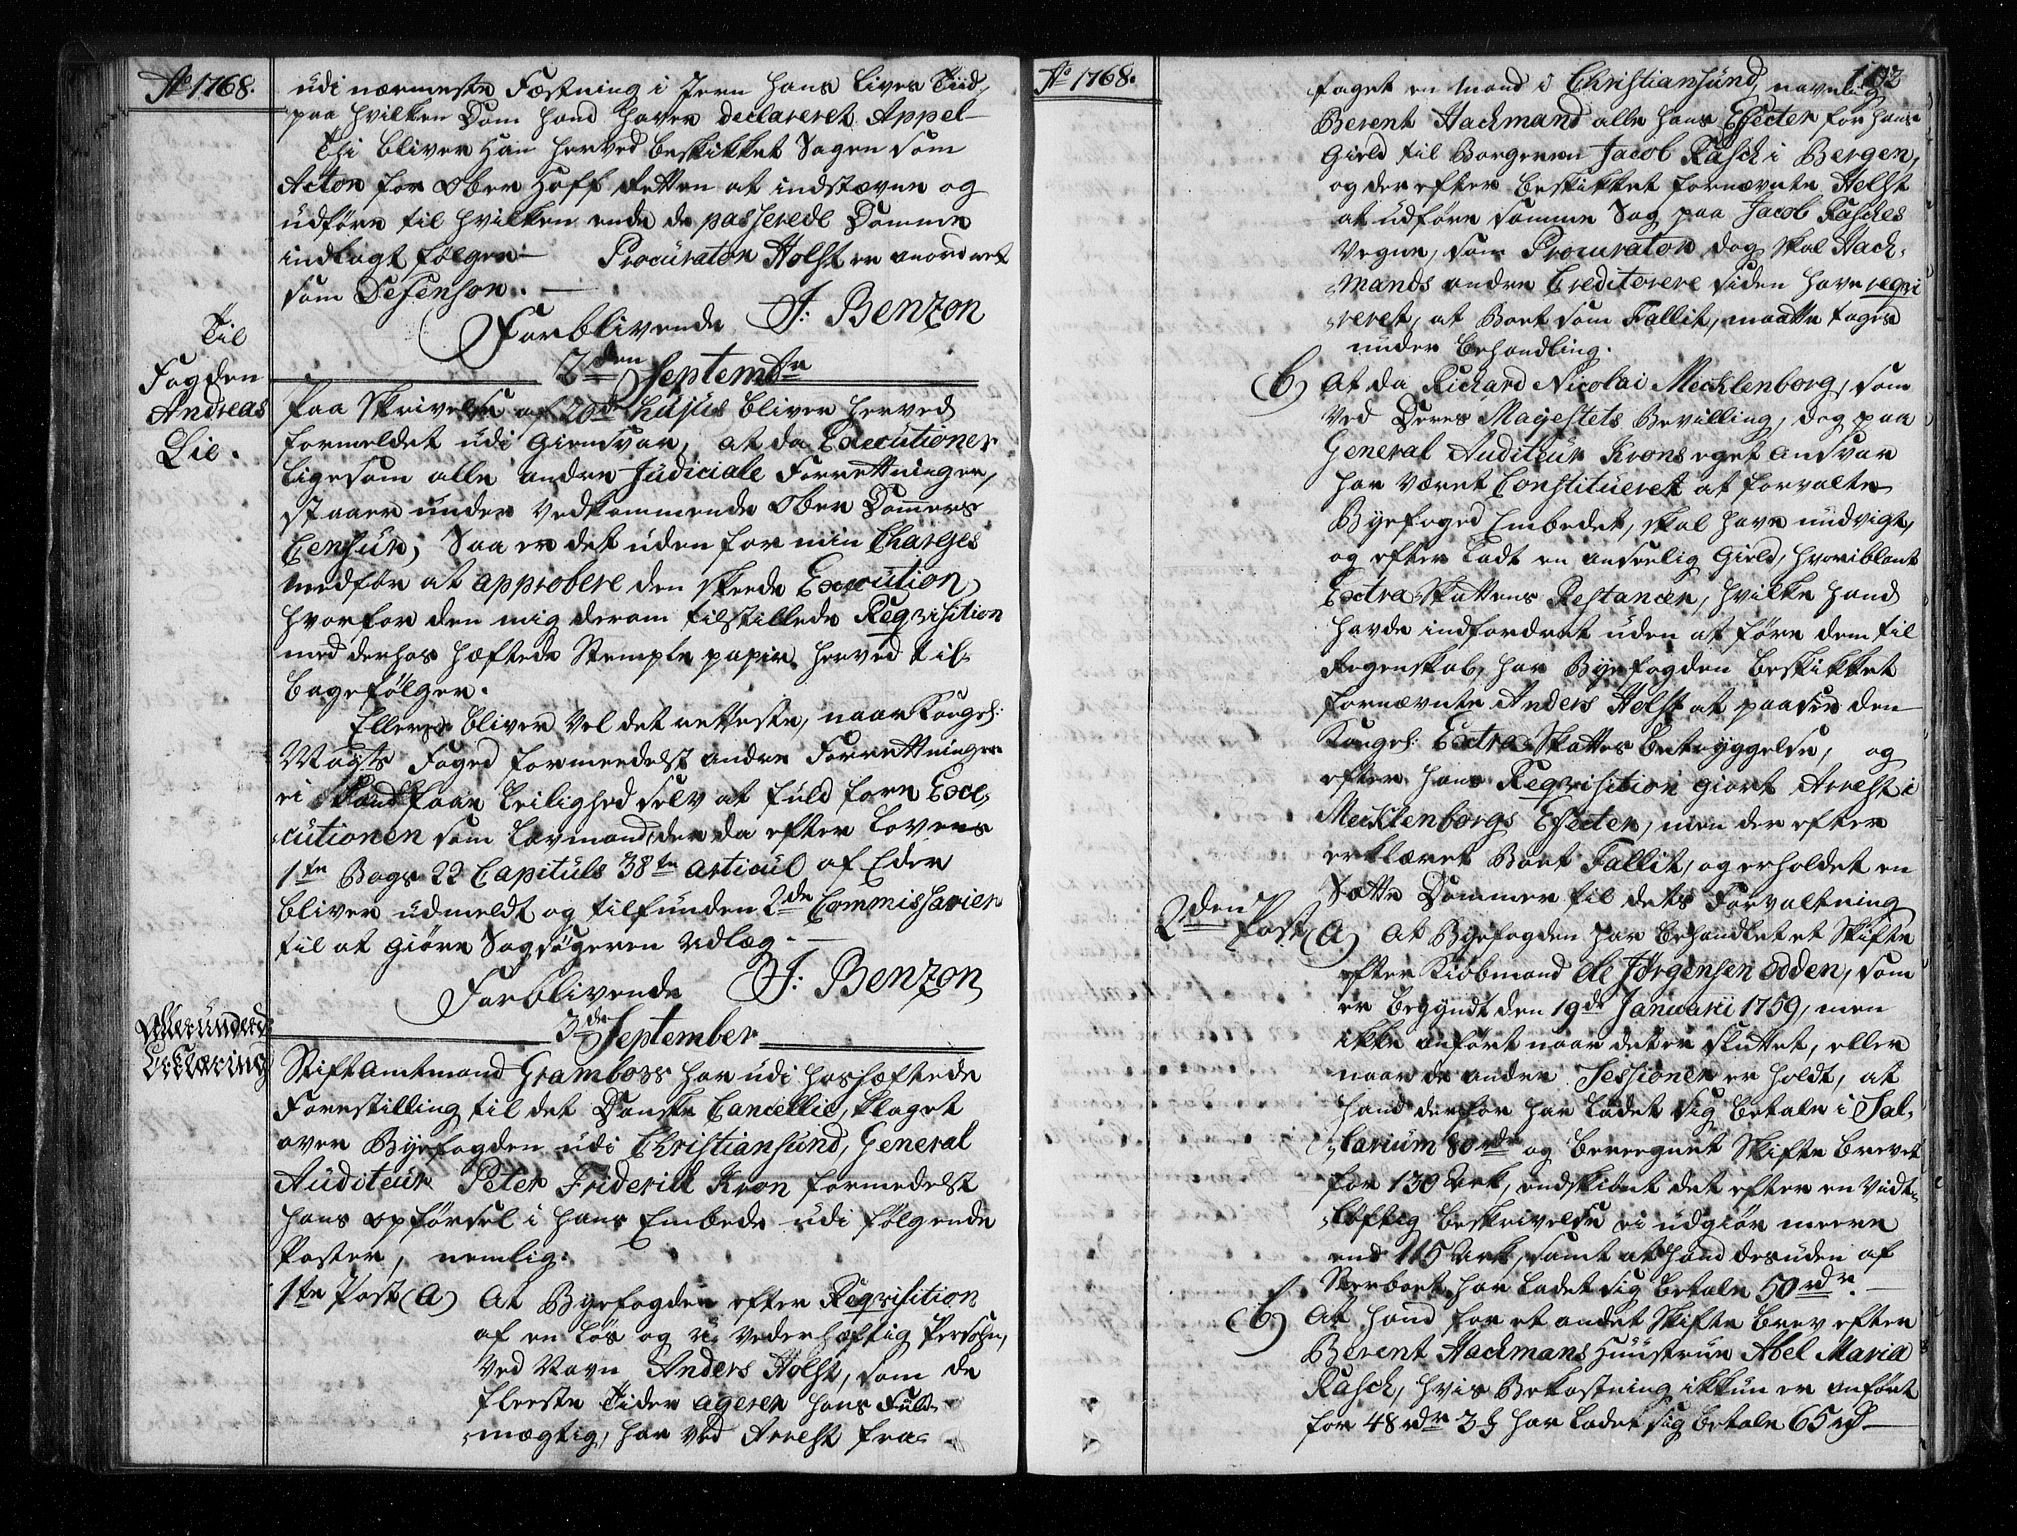 Ao 1768.
udi nærmeste Fæstning i Jern hans Lives Tiid,
paa hvilken Dom hand haver declareret Appel
Thi bliver Han herved beskikket Sagen som
Actor for Ober Hoff Retten at indstævne og
udføre til hvilken ende de passerede Domme
indlagt følger. Procurator Holst er anordnet
som Defensor.
Forblivende J: Benzon
Til
Fogden
Andreas
Lie.
2den Septembr
Paa Skrivelse af 20de hujus bliver herved
formeldet udi Giensvar, at da Executioner
ligesom alle andre Judiciale Forrettninger,
staaer under vedkommende Ober Dommers
Censur, Saa er det uden for min Charges
medfør at approbere den skeede Execution,
hvorfor den mig derom tilstillede Reqvisition
med derhos hæftede Stemple papir herved til-
bagefølger.
Ellers bliver vel det retteste, naar Kongel:
Mayts Foged formedelst andre Forrettninger
ei Sand faar Leilighed selv at fuld føre Exe-
cutionen som Laxmand, der da efter Lovens
1te Bogs 22 Capituls 38te articul af Eder
bliver udmeldt og tilfunden 2de Commissarier
til at giøre Sagsøgeren Udlæg.
Forblivende J: Benzon
Allerunderd:
Erklæring
3de September
Stiftamtmand Grambors har udi hoshæftede
Forestilling til det Danske Cancellie, klaget
over Byefogden udi Christiansund, General
Auditeur Peter Friderich Kron formedelst
hans opførsel i hans Embede udi følgende
Poster, nemlig:
1te Post (a) At Byefogden efter Reqvisition
af en løs og u-vederhæftig Persohn,
ved Navn Anders Holst, som de
fleeste Tider agerer hans Fuld-
mægtig, har ved Arrest fra-
Ao 1768.
102
taget en Mand i Christiansund, navnlig
Berent Hachmand alle hans Effecter for hans
Gield til Borgeren Jacob Rasch i Bergen,
og der efter beskikket fornævnte Holst
at udføre samme Sag paa Jacob Rasches
Vegne, som Procurator, dog skal Hach-
mands andre Creditorere siden have reqvi
reret, at Boet som Fallit, maatte tages
under behandling.
b) At da Richard Nicolai Mecklenborg, som
ved Deres Mayestets Bevilling, dog paa
General Auditeur Krons eget ansvar
har været Constitueret at forvalte
Byefoged Embedet, skal have undvigt,
og efter ladt en anseelig Gield, hvoriblant
Extra Skattens Restancer, hvilke hand
havde indfordret uden at føre dem til
Regenskab, har Byefogden beskikket
fornævnte Anders Holst at paasee den
Kongel: Extra Skattes betryggelse, og
efter hans Reqvisition giort Arrest i
Mecklenborgs Effecter, men der efter
erklæret Boet Fallit, og erholdet en
Sætte Dommer til dets Forvaltning
2den Post (a) At Byefogden har behandlet et Skifte
efter Kiøbmand Ole Jørgensen Odden, som
er begyndt den 19de Januarii 1759, men
ikke anført naar det er sluttet, eller
naar de andre Sessioner er holdt, at
hand derfor har ladet sig betale i Sal-
larium 80 rdr og beregnet Skifte brevet
for 130 Ark, endskiønt det efter en vidt-
løftig beskrivelse ei udgiør meere
end 115 Ark, samt at hand desuden af
Sterboet har ladet sig betale 50 rdr.
b) At hand for et andet Skifte brev efter
Berent Hachmans Huustrue Abel Maria
Rasch, hvis Bekostning ikkun er anført
for 48 rdr 3 ß har ladet sig betale 65 rd